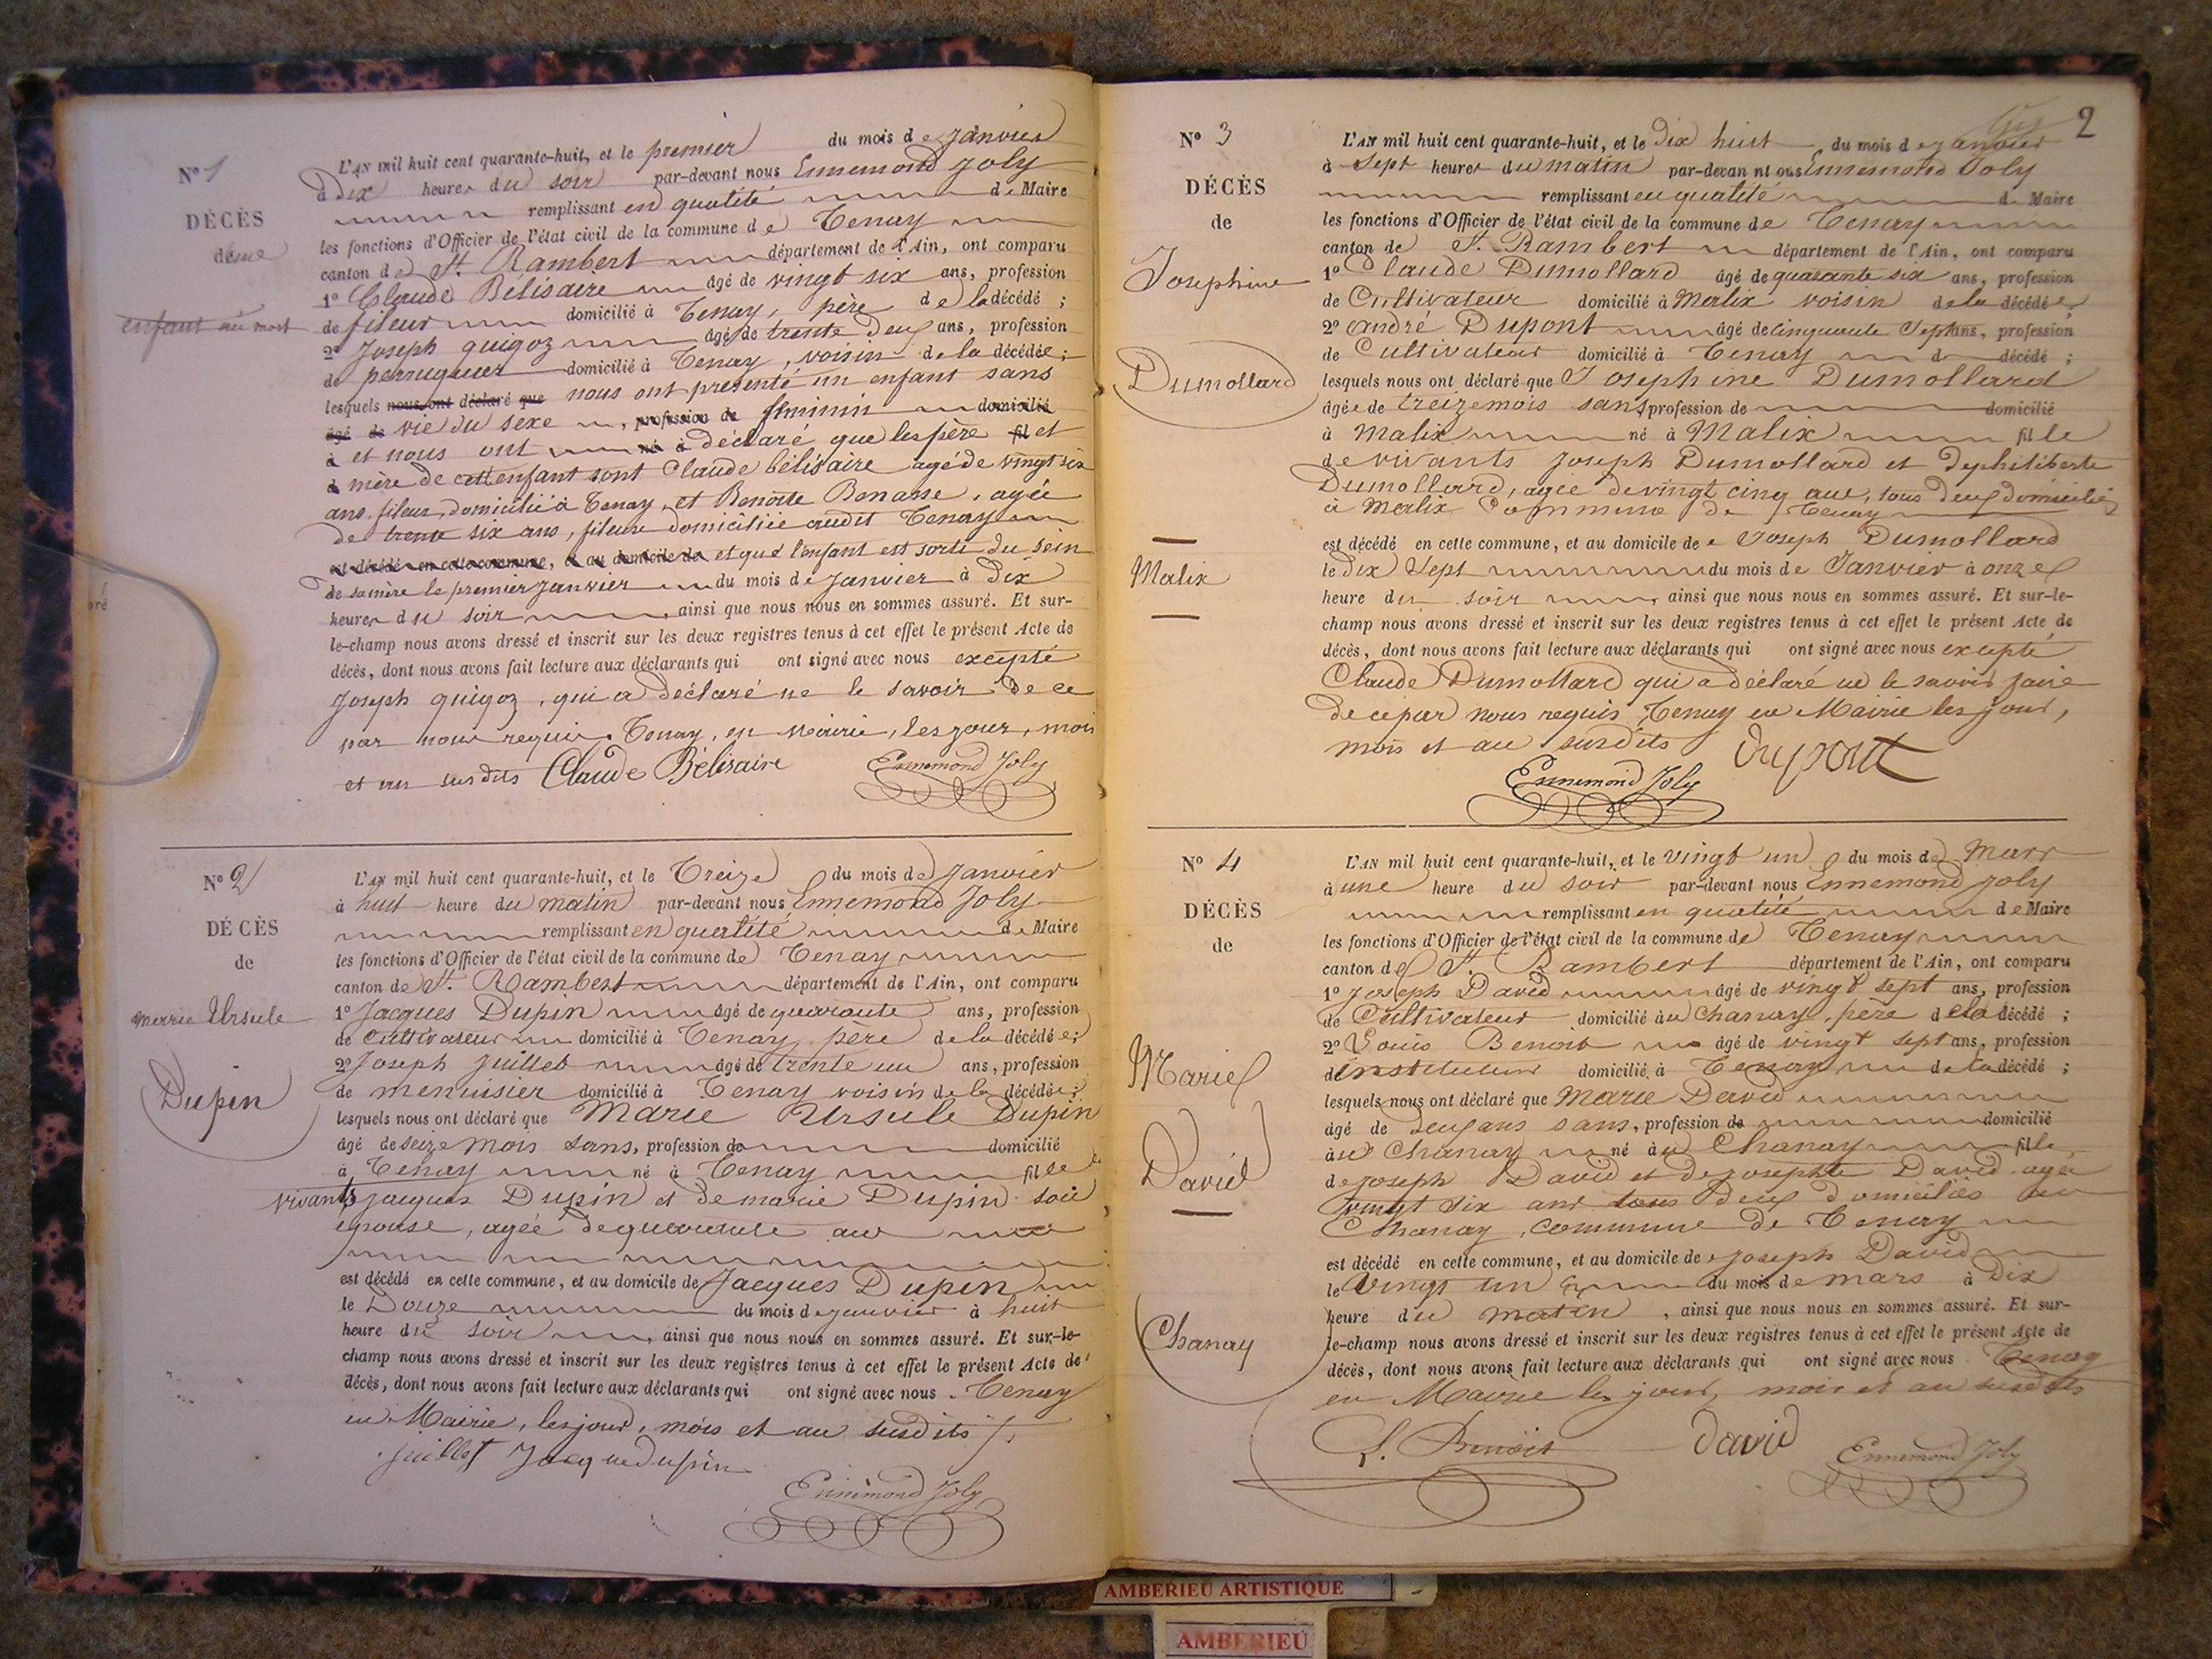 N° 1
DÉCÈS
enfant né mort
L'AN mil huit cent quarante-huit, et le premier du mois de Janvier
à Dix heures du soir par-devant nous Ennemond Joly
remplissant en qualité de Maire
les fonctions d'Officier de l'état civil de la commune de Tenay
canton de St. Rambert département de l'Ain, ont comparu
1° Claude Bélisaire âgé de vingt six ans, profession
de fileur domicilié à Tenay, père de la décédé ;
2° Joseph guigoz âgé de trente deux ans, profession
de perruquier domicilié à Tenay, voisin de la décédée ;
lesquels nous ont déclaré que nous ont présenté un enfant sans
âgé de vie du sexe, profession de féminin domicilié
à et nous ont né à déclaré que les père fil et
d mère de cet enfant sont Claude bélisaire agé de vingt six
ans fileur, domicilié à Tenay, et Benoite Benasse, agée
de trente six ans, fileuse domiciliée audit Tenay
est décédé en cette commune, et au domicile de et que l'enfant est sorti du sein
de sa mère le premier Janvier du mois de Janvier à Dix
heures du soir, ainsi que nous nous en sommes assuré. Et sur-
le-champ nous avons dressé et inscrit sur les deux registres tenus à cet effet le présent Acte de
décès, dont nous avons fait lecture aux déclarants qui ont signé avec nous excepté
Joseph guigoz, qui a déclaré ne le savoir de ce
par nous requis. Tenay, en Mairie, les jour, mois
et an susdits Claude Bélisaire Ennemond Joly
N° 2
DÉCÈS
de
Marie Ursule
Dupin
L'AN mil huit cent quarante-huit, et le Treize du mois de Janvier
à huit heure du matin par-devant nous Ennemond Joly
remplissant en qualité de Maire
les fonctions d'Officier de l'état civil de la commune de Tenay
canton de St. Rambert département de l'Ain, ont comparu
1° Jacques Dupin âgé de quarante ans, profession
de cultivateur domicilié à Tenay, père de la décédée ;
2° Joseph Juillet âgé de trente un ans, profession
de menuisier domicilié à Tenay voisin de la décédée ;
lesquels nous ont déclaré que Marie Ursule Dupin
âgé de seize mois sans, profession de domicilié
à Tenay né à Tenay fille
vivants Jacques Dupin et de marie Dupin son
épouse, agée de quarante ans
est décédé en cette commune, et au domicile de Jacques Dupin
le Douze du mois de janvier à huit
heure du soir, ainsi que nous nous en sommes assuré. Et sur-le-
champ nous avons dressé et inscrit sur les deux registres tenus à cet effet le présent Acte de
décès, dont nous avons fait lecture aux déclarants qui ont signé avec nous. Tenay
en Mairie, les jour, mois et an susdits
juillet Jacque dupin
Ennemond Joly
2
N° 3
DÉCÈS
de
Josephine
Dumollard
Malix
L'AN mil huit cent quarante-huit, et le Dix huit du mois de janvier
à Sept heures du matin par-devan nt ous Ennemond Joly
remplissant en qualité de Maire
les fonctions d'Officier de l'état civil de la commune de Tenay
canton de St. Rambert département de l'Ain, ont comparu
1° Claude Dumollard âgé de quarante six ans, profession
de Cultivateur domicilié à Malix voisin de la décédée
2° André Dupont âgé de cinquante Sept ans, profession
de Cultivateur domicilié à Tenay d décédé ;
lesquels nous ont déclaré que Josephine Dumollard
âgée de treize mois sans profession de domicilié
à Malix né à Malix fille
de vivants Joseph Dumollard et de philiberte
Dumollard, agée de vingt cinq ans, tous deux domiciliés
à Malix Commune de Tenay
est décédé en cette commune, et au domicile de Joseph Dumollard
le Dix Sept du mois de Janvier à onze
heure du soir, ainsi que nous nous en sommes assuré. Et sur-le-
champ nous avons dressé et inscrit sur les deux registres tenus à cet effet le présent Acte de
décès, dont nous avons fait lecture aux déclarants qui ont signé avec nous excepté
Claude Dumollard qui a déclaré ne le savoir faire
de ce par nous requis Tenay en Mairie les jour,
mois et an susdits Dupont
Ennemond Joly
N° 4
DÉCÈS
de
Marie
David
Chanay
L'AN mil huit cent quarante-huit, et le vingt un du mois de Mars
à une heure du soir par-devant nous Ennemond Joly
remplissant en qualité de Maire
les fonctions d'Officier de l'état civil de la commune de Tenay
canton de St. Rambert département de l'Ain, ont comparu
1° Joseph David âgé de vingt sept ans, profession
de Cultivateur domicilié au Chanay, père de la décédé ;
2° Louis Benoit âgé de vingt sept ans, profession
d'instituteur domicilié à Tenay de la décédé ;
lesquels nous ont déclaré que Marie David
âgé de deux ans sans, profession de domicilié
au Chanay né au Chanay fille
de Joseph David et de josephte David agée
vingt six ans tous deux domiciliés au
Chanay, commune de Tenay
est décédé en cette commune, et au domicile de Joseph David
le vingt un du mois de mars à Dix
heure du matin, ainsi que nous nous en sommes assuré. Et sur-
le-champ nous avons dressé et inscrit sur les deux registres tenus à cet effet le présent Acte de
décès, dont nous avons fait lecture aux déclarants qui ont signé avec nous. Tenay
en Mairie les jour, mois et an susdits
L. Benoit David Ennemond Joly
AMBERIEU ARTISTIQUE
AMBERIEU